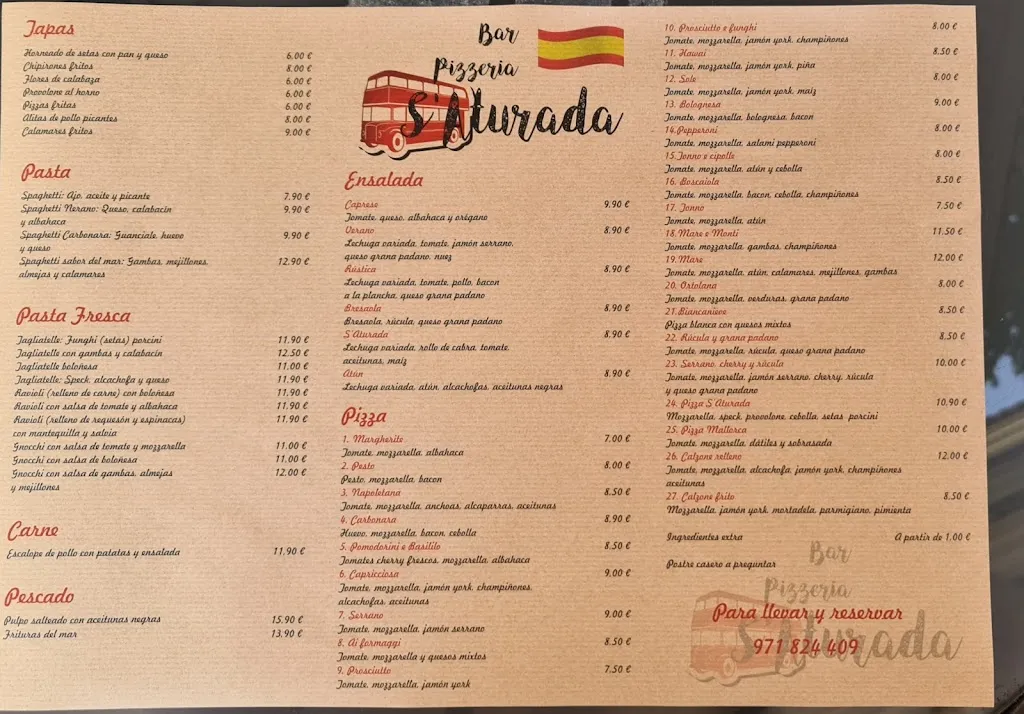 Tapas
Horneado de setas con pan y queso 6.00 €
Chipirones fritos 8.00 €
Flores de calabaza 6.00 €
Provolone al horno 6.00 €
Pizzas fritas 6.00 €
Alitas de pollo picantes 8.00 €
Calamares fritos 9.00 €
Pasta
Spaghetti: Ajo, aceite y picante 7.90 €
Spaghetti Nerano: Queso, calabacín 9.90 €
y albahaca
Spaghetti Carbonara: Guanciale, huevo 9.90 €
y queso
Spaghetti sabor del mar: Gambas, mejillones, 12.90 €
almejas y calamares
Pasta Fresca
Tagliatelle: Funghi (setas) porcini 11.90 €
Tagliatelle con gambas y calabacín 12.50 €
Tagliatelle boloñesa 11.00 €
Tagliatelle: Speck, alcachofa y queso 11.90 €
Ravioli (relleno de carne) con boloñesa 11.90 €
Ravioli con salsa de tomate y albahaca 11.90 €
Ravioli (relleno de requesón y espinacas) 11.90 €
con mantequilla y salvia
Gnocchi con salsa de tomate y mozzarella 11.00 €
Gnocchi con salsa de boloñesa 11.00 €
Gnocchi con salsa de gambas, almejas 12.00 €
y mejillones
Carne
Escalope de pollo con patatas y ensalada 11.90 €
Pescado
Pulpo salteado con aceitunas negras 15.90 €
Frituras del mar 13.90 €
Bar
Pizzeria
S'Aturada
Ensalada
Caprese 9.90 €
Tomate, queso, albahaca y orégano
Verano 8.90 €
Lechuga variada, tomate, jamón serrano,
queso grana padano, nuez
Rústica 8.90 €
Lechuga variada, tomate, pollo, bacon
a la plancha, queso grana padano
Bresaola 8.90 €
Bresaola, rúcula, queso grana padano
S'Aturada 8.90 €
Lechuga variada, rollo de cabra, tomate,
aceitunas, maiz
Atún 8.90 €
Lechuga variada, atún, alcachofas, aceitunas negras
Pizza
1. Margherite 7.00 €
Tomate, mozzarella, albahaca
2. Pesto 8.00 €
Pesto, mozzarella, bacon
3. Napoletana 8.50 €
Tomate, mozzarella, anchoas, alcaparras, aceitunas
4. Carbonara 8.90 €
Huevo, mozzarella, bacon, cebolla
5. Pomodorini e Basililo 8.50 €
Tomates cherry frescos, mozzarella, albahaca
6. Capricciosa 9.00 €
Tomate, mozzarella, jamón york, champiñones,
alcachofas, aceitunas
7. Serrano 9.00 €
Tomate, mozzarella, jamón serrano
8. Ai formaggi 8.50 €
Tomate, mozzarella y quesos mixtos
9. Prosciutto 7.50 €
Tomate, mozzarella, jamón york
10. Prosciutto e funghi 8.00 €
Tomate, mozzarella, jamón york, champiñones
11. Hawai 8.50 €
Tomate, mozzarella, jamón york, piña
12. Sole 8.00 €
Tomate, mozzarella, jamón york, maiz
13. Bolognesa 9.00 €
Tomate, mozzarella, bolognesa, bacon
14. Pepperoni 8.00 €
Tomate, mozzarella, salami pepperoni
15. Tonno e cipolle 8.00 €
Tomate, mozzarella, atún y cebolla
16. Boscaiola 8.50 €
Tomate, mozzarella, bacon, cebolla, champiñones
17. Tonno 7.50 €
Tomate, mozzarella, atún
18. Mare e Monti 11.50 €
Tomate, mozzarella, gambas, champiñones
19. Mare 12.00 €
Tomate, mozzarella, atún, calamares, mejillones, gambas
20. Ortolana 8.00 €
Tomate, mozzarella, verduras, grana padano
21. Biancanieve 8.50 €
Pizza blanca con quesos mixtos
22. Rúcula y grana padano 8.50 €
Tomate, mozzarella, rúcula, queso grana padano
23. Serrano, cherry y rúcula 10.00 €
Tomate, mozzarella, jamón serrano, cherry, rúcula
y queso grana padano
24. Pizza S'Aturada 10.90 €
Mozzarella, speck, provolone, cebolla, setas, porcini
25. Pizza Mallorca 10.00 €
Tomate, mozzarella, dátiles y sobrasada
26. Calzone relleno 12.00 €
Tomate, mozzarella, alcachofa, jamón york, champiñones
aceitunas
27. Calzone frito 8.50 €
Mozzarella, jamón york, mortadela, parmigiano, pimienta
Ingredientes extra A partir de 1.00 €
Postre casero a preguntar
Bar
Pizzeria
S'Aturada
Para llevar y reservar
971 824 409